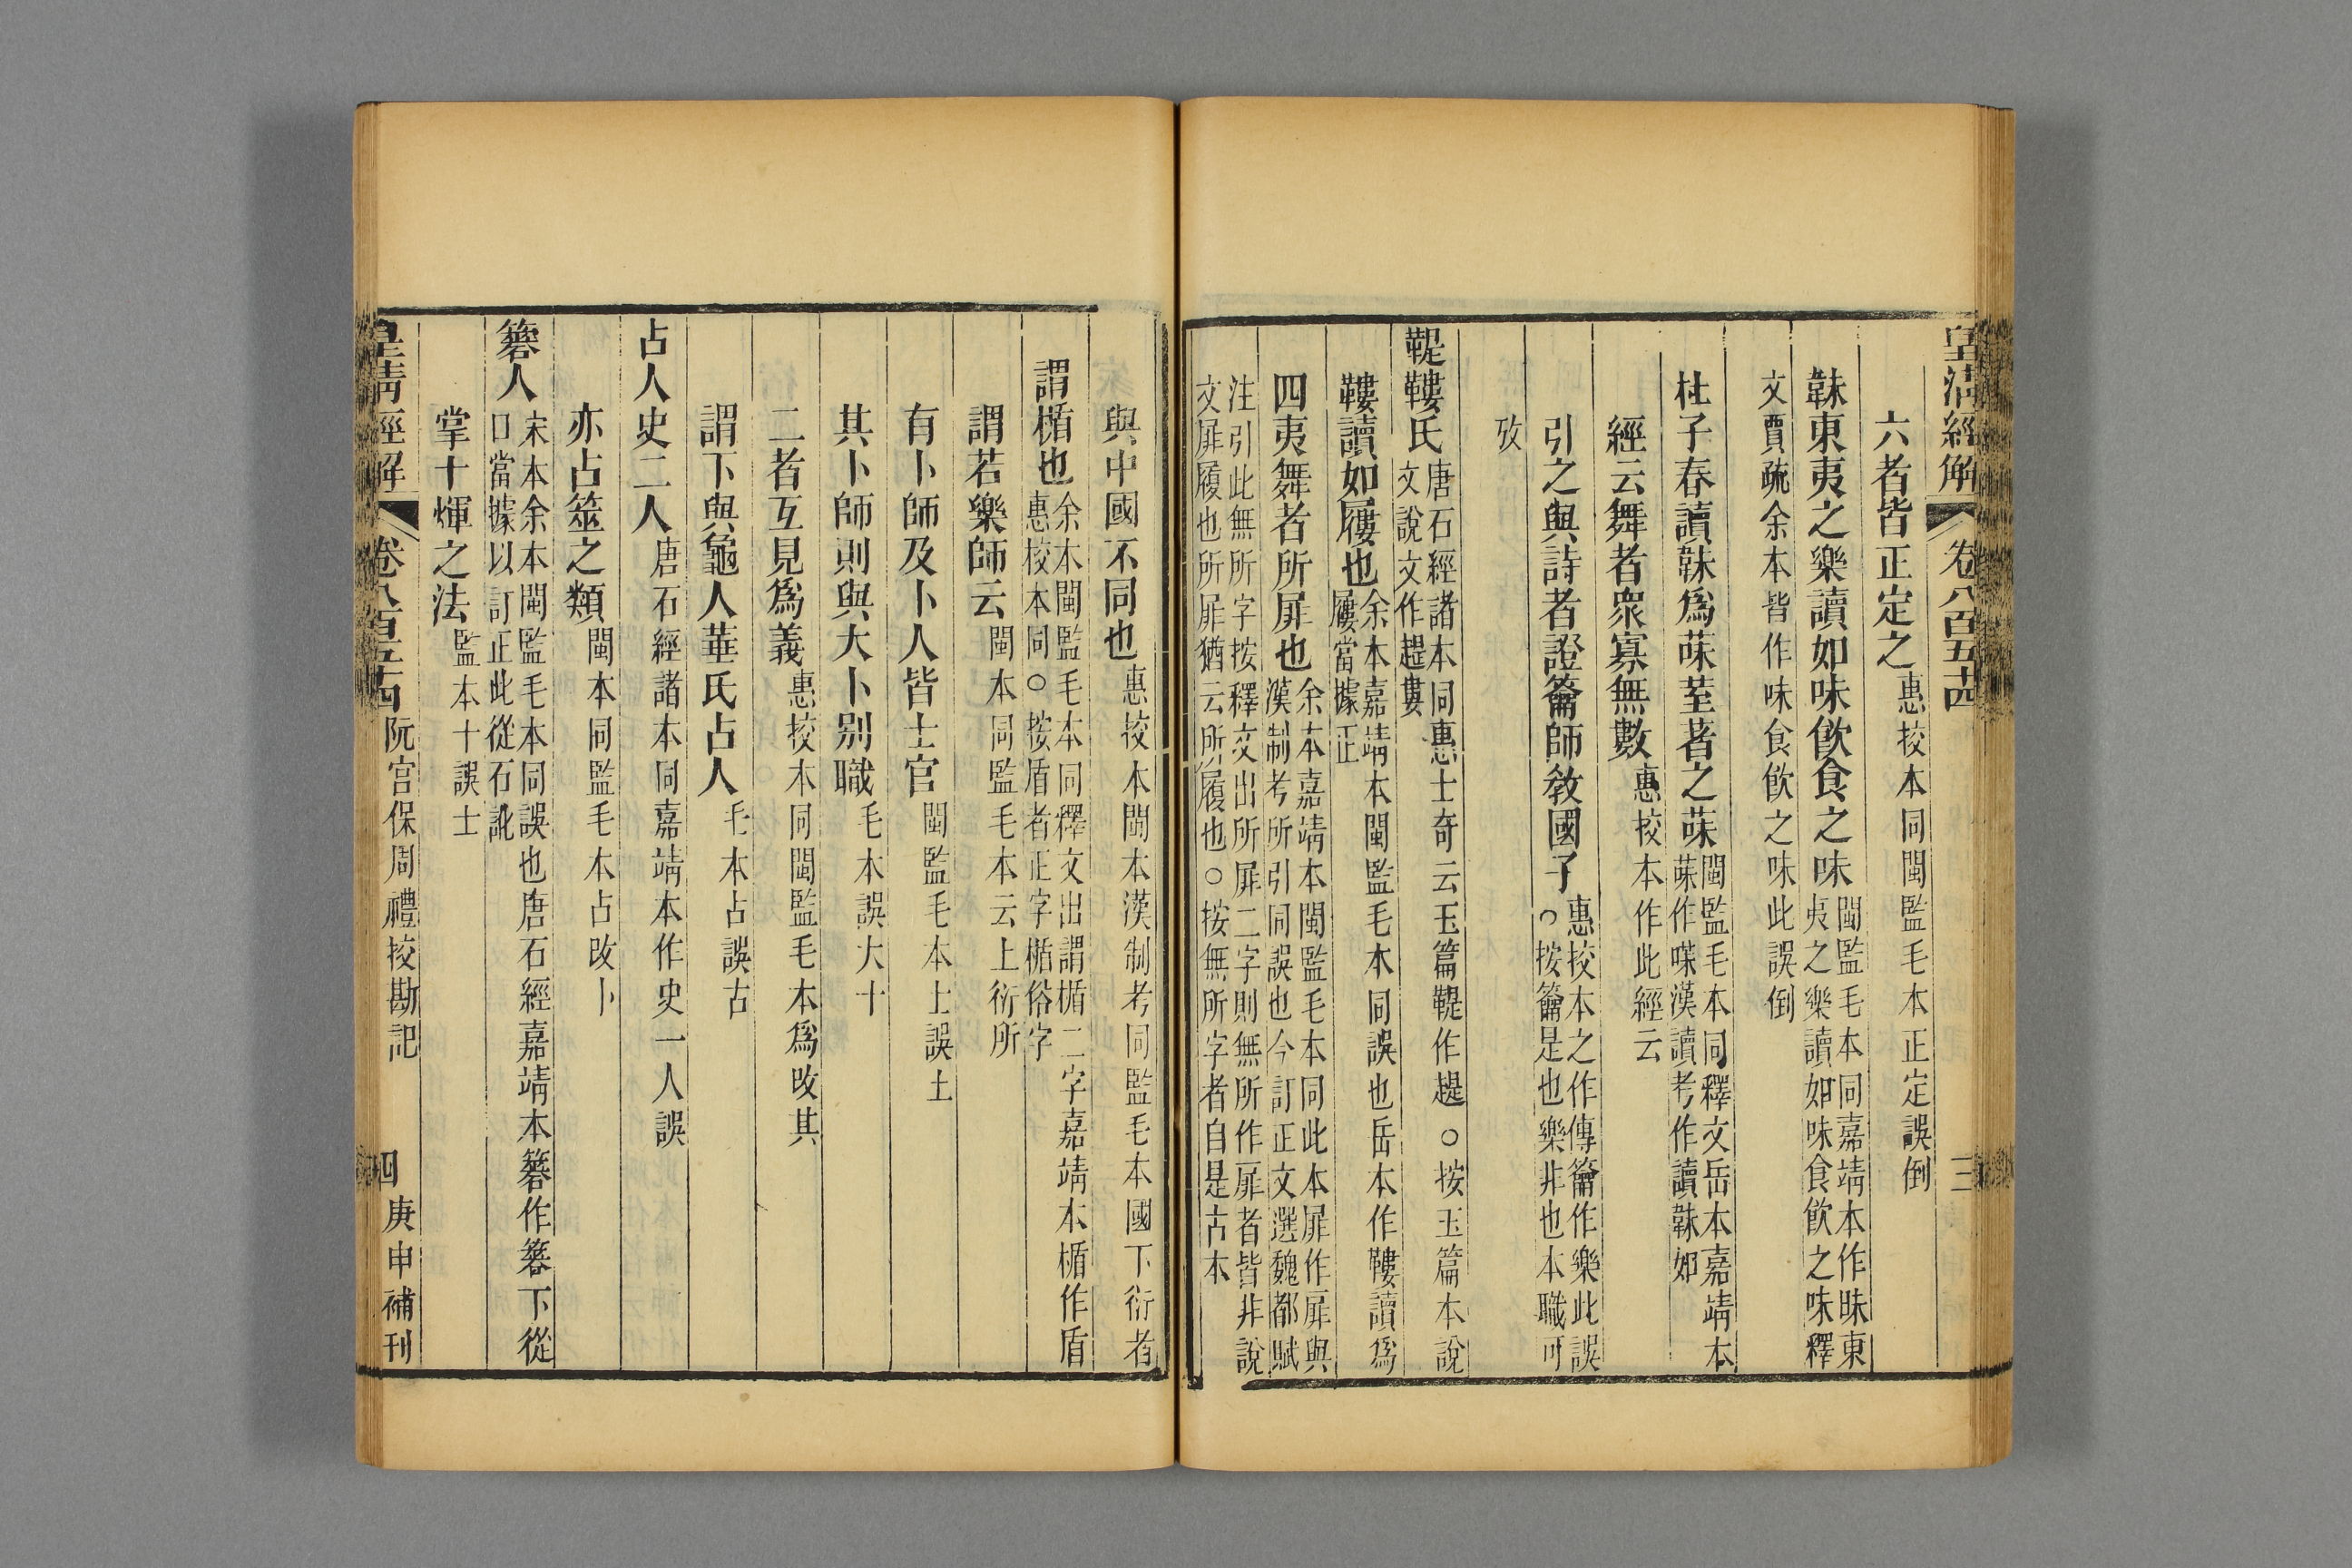 皇清經解 卷八百五十四 三
六者皆正定之 惠挍本同閩監毛本正定誤倒
韎東夷之樂讀如味飮食之味 閩監毛本同嘉靖本作昧東夷之樂讀如味食飮之味釋
文賈疏余本皆作味食飮之味此誤倒
杜子春讀韎爲菋荎著之菋 閩監毛本同釋文岳本嘉靖本菋作㗱漢讀考作讀韎如
經云舞者衆寡無數 惠挍本作此經云
引之與詩者證籥師敎國子 惠挍本之作傳籥作樂此誤○按籥是也樂非也本職可
攷
鞮鞻氏 唐石經諸本同惠士奇云玉篇鞮作趧○按玉篇本說文說文作趧婁
鞻讀如屨也 余本嘉靖本閩監毛本同誤也岳本作鞻讀爲屨當據正
四夷舞者所屝也 余本嘉靖本閩監毛本同此本屝作扉與漢制考所引同誤也今訂正文選魏都賦
注引此無所字按釋文出所屝二字則無所作屝者皆非說
文屝履也所屝猶云所履也○按無所字者自是古本
與中國不同也 惠挍本閩本漢制考同監毛本國下衍者
謂楯也 余本閩監毛本同釋文出謂楯二字嘉靖本楯作盾惠挍本同○按盾者正字楯俗字
謂若樂師云 閩本同監毛本云上衍所
有卜師及卜人皆士官 閩監毛本上誤土
其卜師則與大卜別職 毛本誤大十
二者互見爲義 惠挍本同閩監毛本爲改其
謂下與龜人菙氏占人 毛本占誤古
占人史二人 唐石經諸本同嘉靖本作史一人誤
亦占筮之類 閩本同監毛本占改卜
簭人 宋本余本閩監毛本同誤也唐石經嘉靖本簭作簭下從口當據以訂正此從石訛
掌十煇之法 監本十誤士
皇清經解 卷八百五十四 阮宮保周禮挍勘記 四 庚申補刊